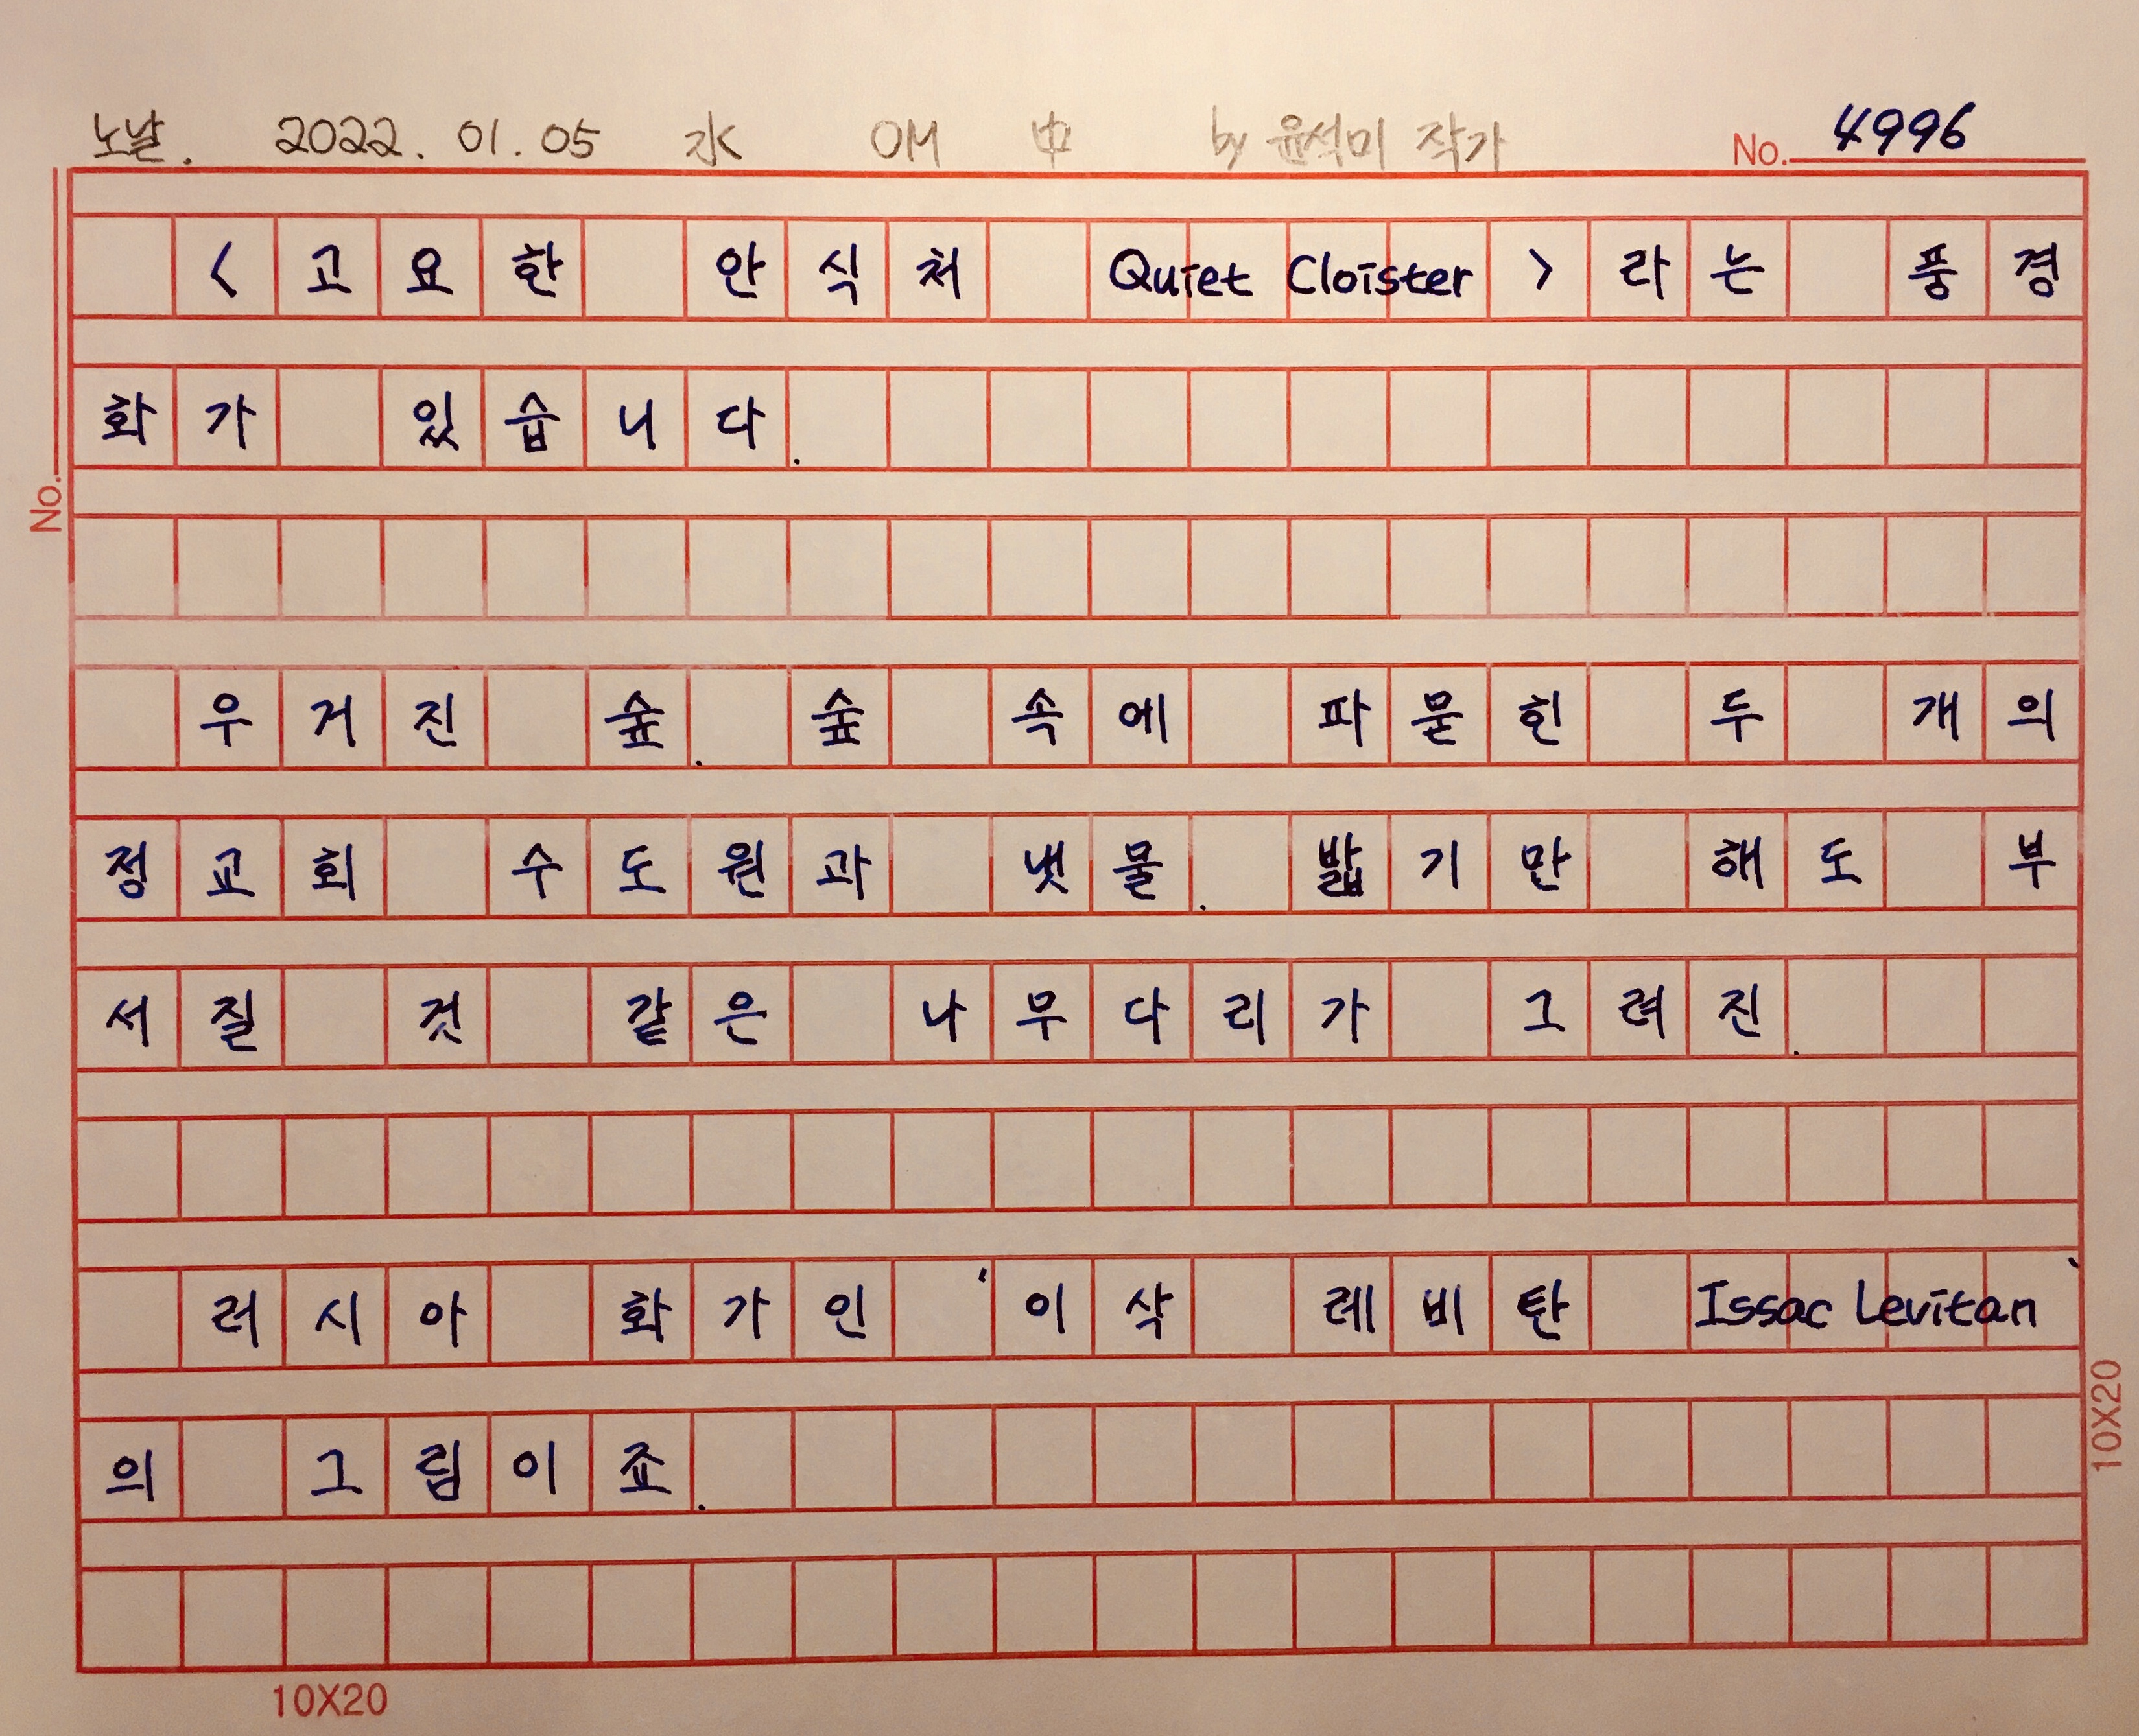 노날. 2022. 01. 05 水 OM 中 by 윤석미 작가
No. 4996
<고요한 안식처 Quiet Cloister>라는 풍경
화가 있습니다.
No.
우거진 숲. 숲 속에 파묻힌 두 개의
정교회 수도원과 냇물. 밟기만 해도 부
서질 것 같은 나무다리가 그려진.
러시아 화가인 '이삭 레비탄 Issac Levitan'
의 그림이죠.
10X20
10X20